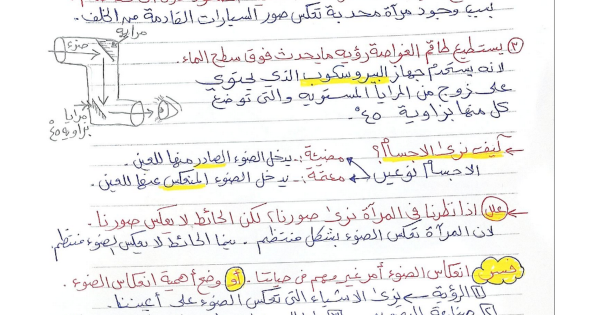 بسبب وجود مرآة محدبة تعكس صور السيارات القادمة من الخلف.
مرايه
ضوء
مرايا
بزاويه ٤٥°
٣) يستطيع طاقم الغواصة رؤية ما يحدث فوق سطح الماء.
لأنه يستخدم جهاز البيروسكوب الذي يحتوي
على زوج من المرايا المستويه والتي توضع
كل منها بزاوية ٤٥°.
كيف نرى الأجسام؟
مضيئة:- يدخل الضوء الصادر منها للعين.
الأجسام نوعين
معتمة:- يدخل الضوء المنعكس عنها للعين.
علل اذا نظرنا في المرآة نرى صورنا؟ لكن الحائط لا يعكس صورنا.
لأن المرآة تعكس الضوء بشكل منتظم. بينما الحائط لا يعكس الضوء منتظم
فسر انعكاس الضوء أمر غير مهم في حياتنا. أو وضع أهمية انعكاس الضوء.
١) الرؤية ← نرى الأشياء التي تعكس الضوء على أعيننا.
٢) صناعة